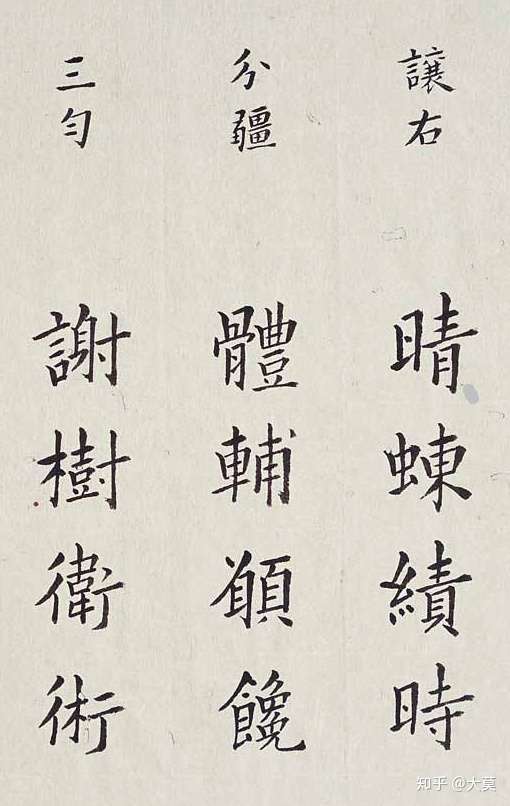 讓右
晴蝀績時
分疆
體輔願饞
三勻
謝樹衛術
知乎 @大莫